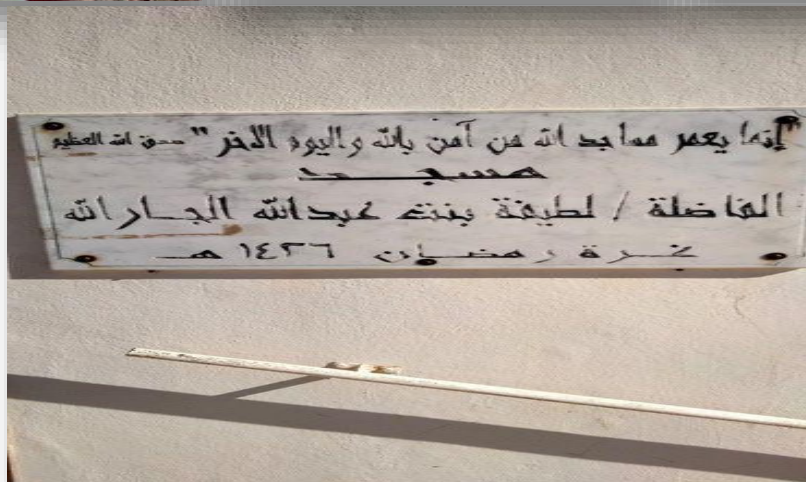 "إنما يعمر مساجد الله من آمن بالله واليوم الآخر" صدق الله العظيم
مسجد
الفاضلة / لطيفة بنت عبدالله الجارالله
غرة رمضان ١٤٢٦ هـ